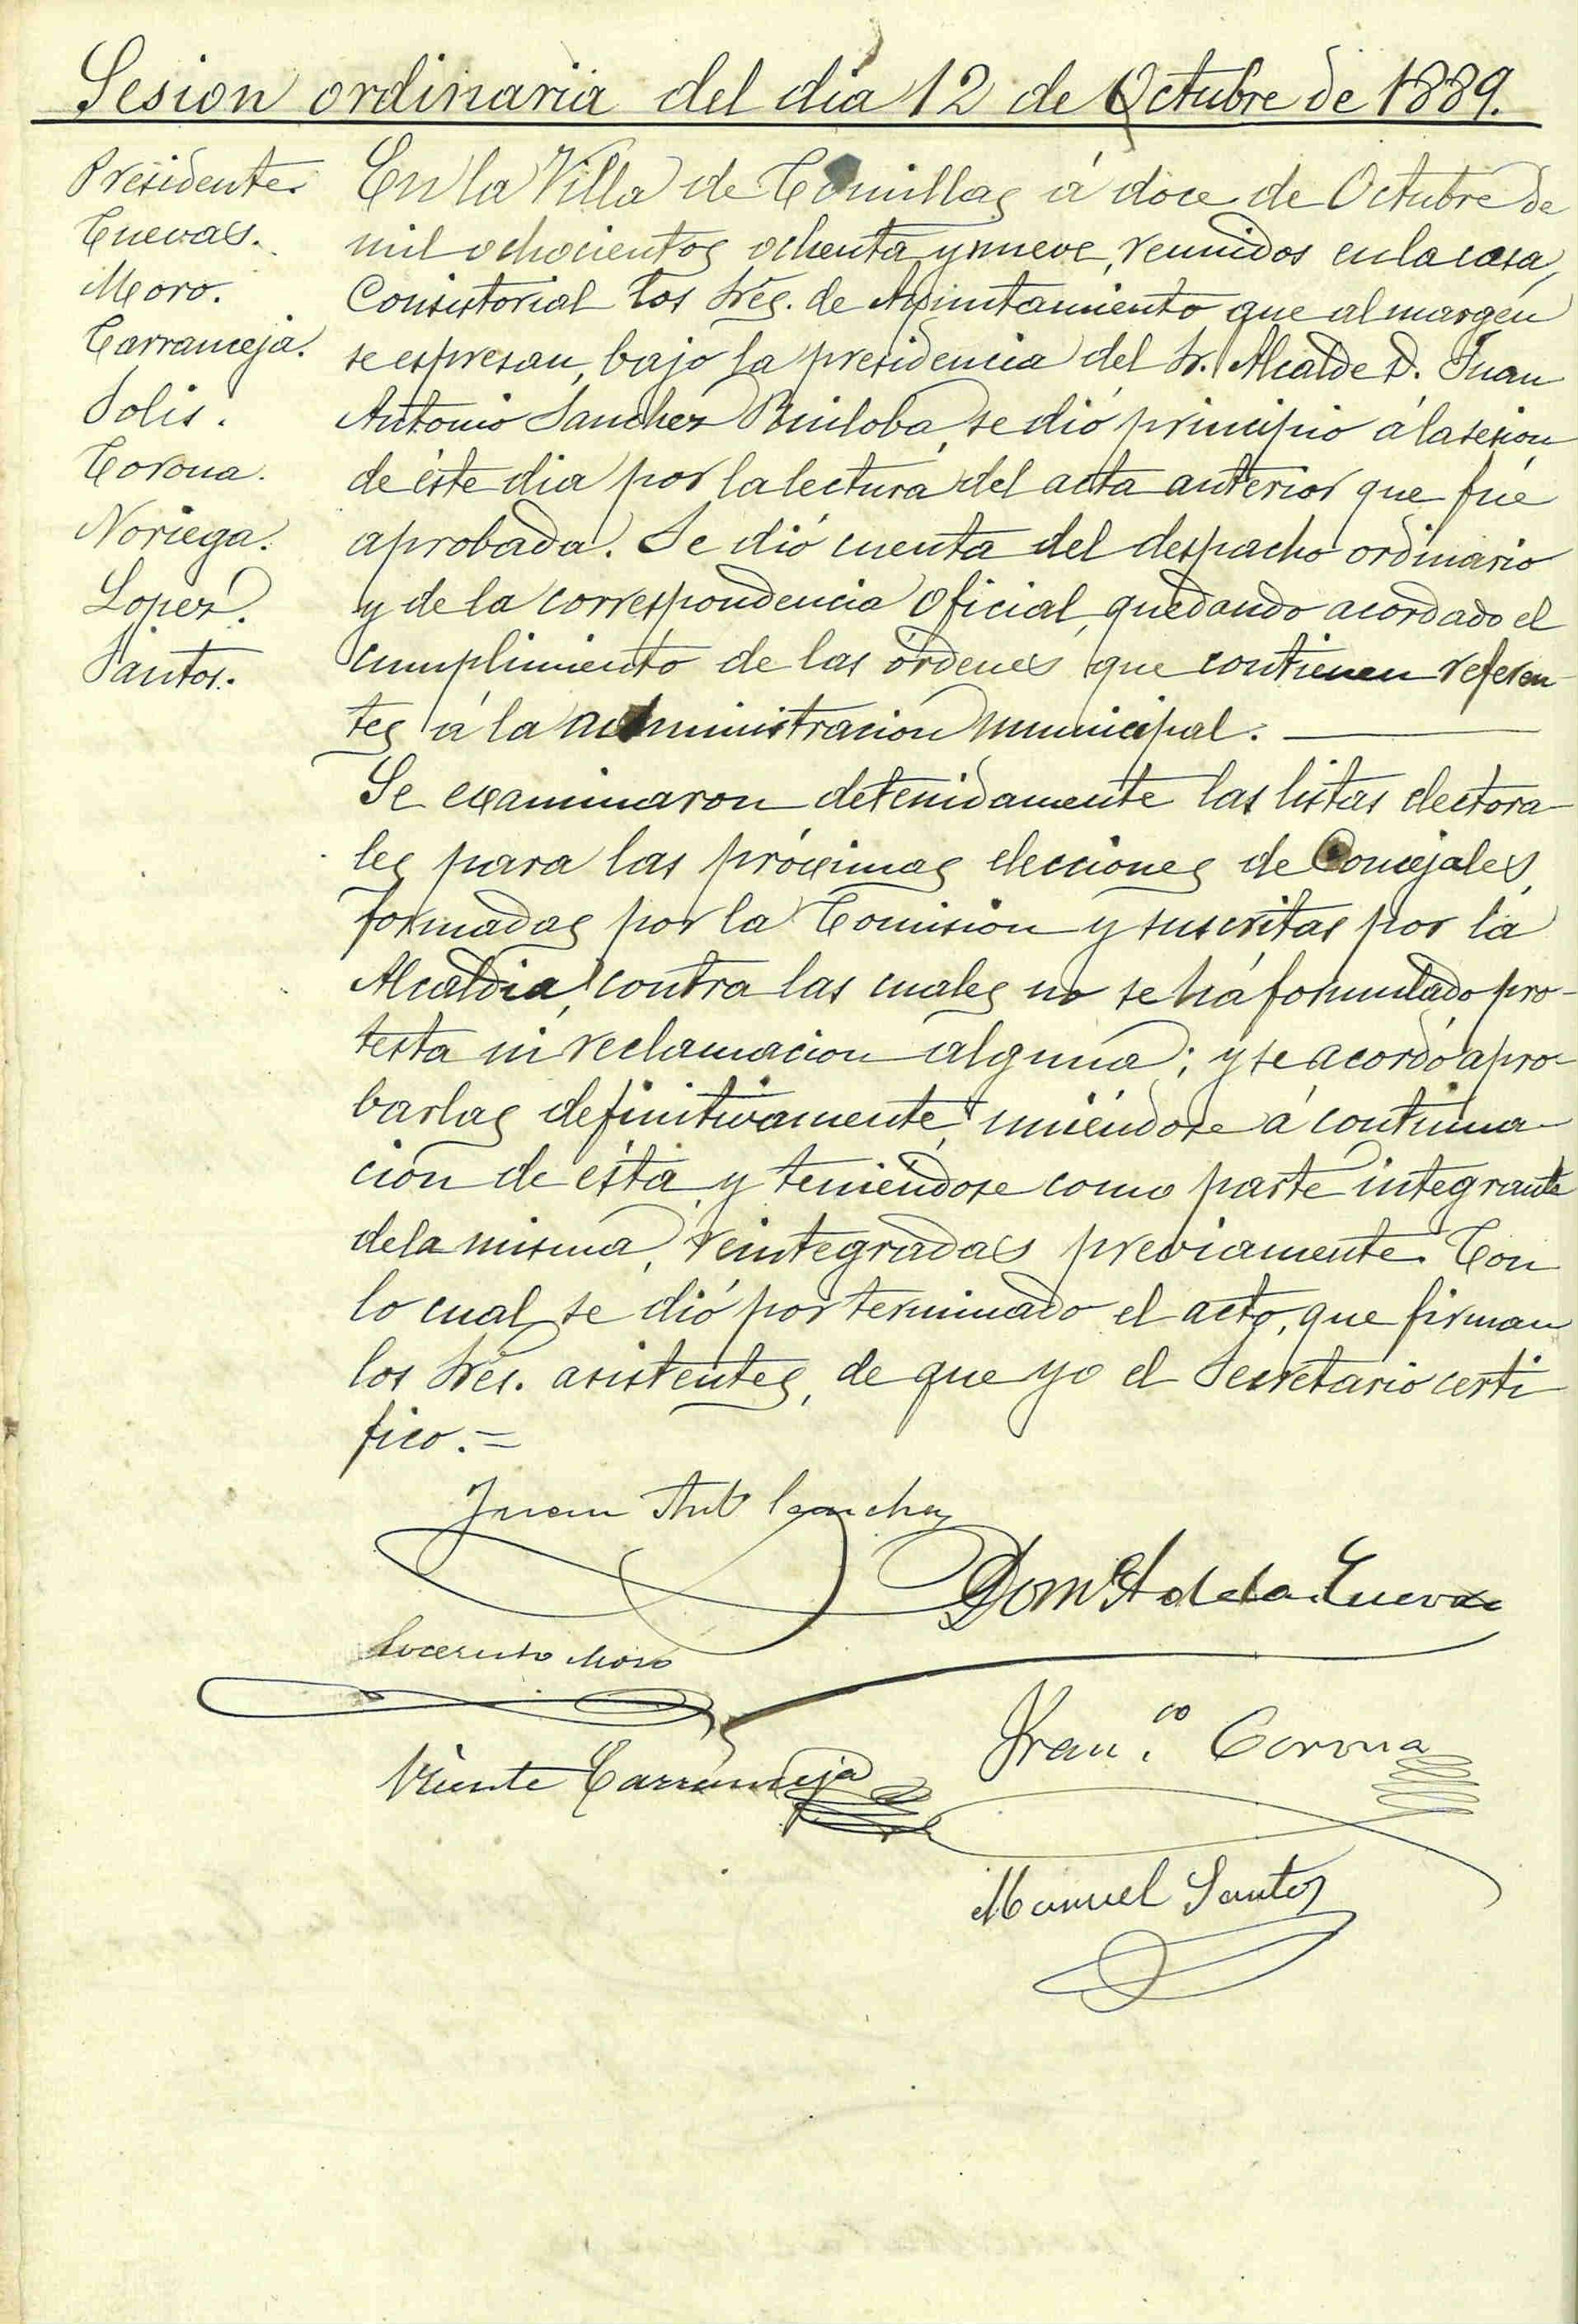 Sesion ordinaria del dia 12 de Octubre de 1889.
Presidente.
Cuevas.
Moro.
Carranceja.
Solis.
Corona.
Noriega.
Lopez.
Santos.
En la Villa de Comillas á doce de Octubre de
mil ochocientos ochenta y nueve, reunidos en la casa
Consistorial los Sres. de Ayuntamiento que al margen
se espresan, bajo la presidencia del Sr. Alcalde D. Juan
Antonio Sanchez Ruiloba, se dió principio á la sesion
de éste dia por la lectura del acta anterior que fué
aprobada. Se dió cuenta del despacho ordinario
y de la correspondencia oficial, quedando acordado el
cumplimiento de las órdenes que contienen referen-
tes á la administracion municipal.
Se examinaron detenidamente las listas electora-
les para las próximas elecciones de Concejales,
formadas por la Comision y suscritas por la
Alcaldia, contra las cuales no se há formulado pro-
testa ni reclamacion alguna; y se acordó apro-
barlas definitivamente, uniéndose á continua-
ción de ésta y teniéndose como parte integrante
de la misma, reintegradas previamente. Con
lo cual se dió por terminado el acto, que firman
los Sres. asistentes, de que yo el Secretario certi-
fico.=
Juan Ant.o Sanchez
Dom.o A de la Cueva
Moro
Vicente Carranceja
Fran.co Corona
Manuel Santos